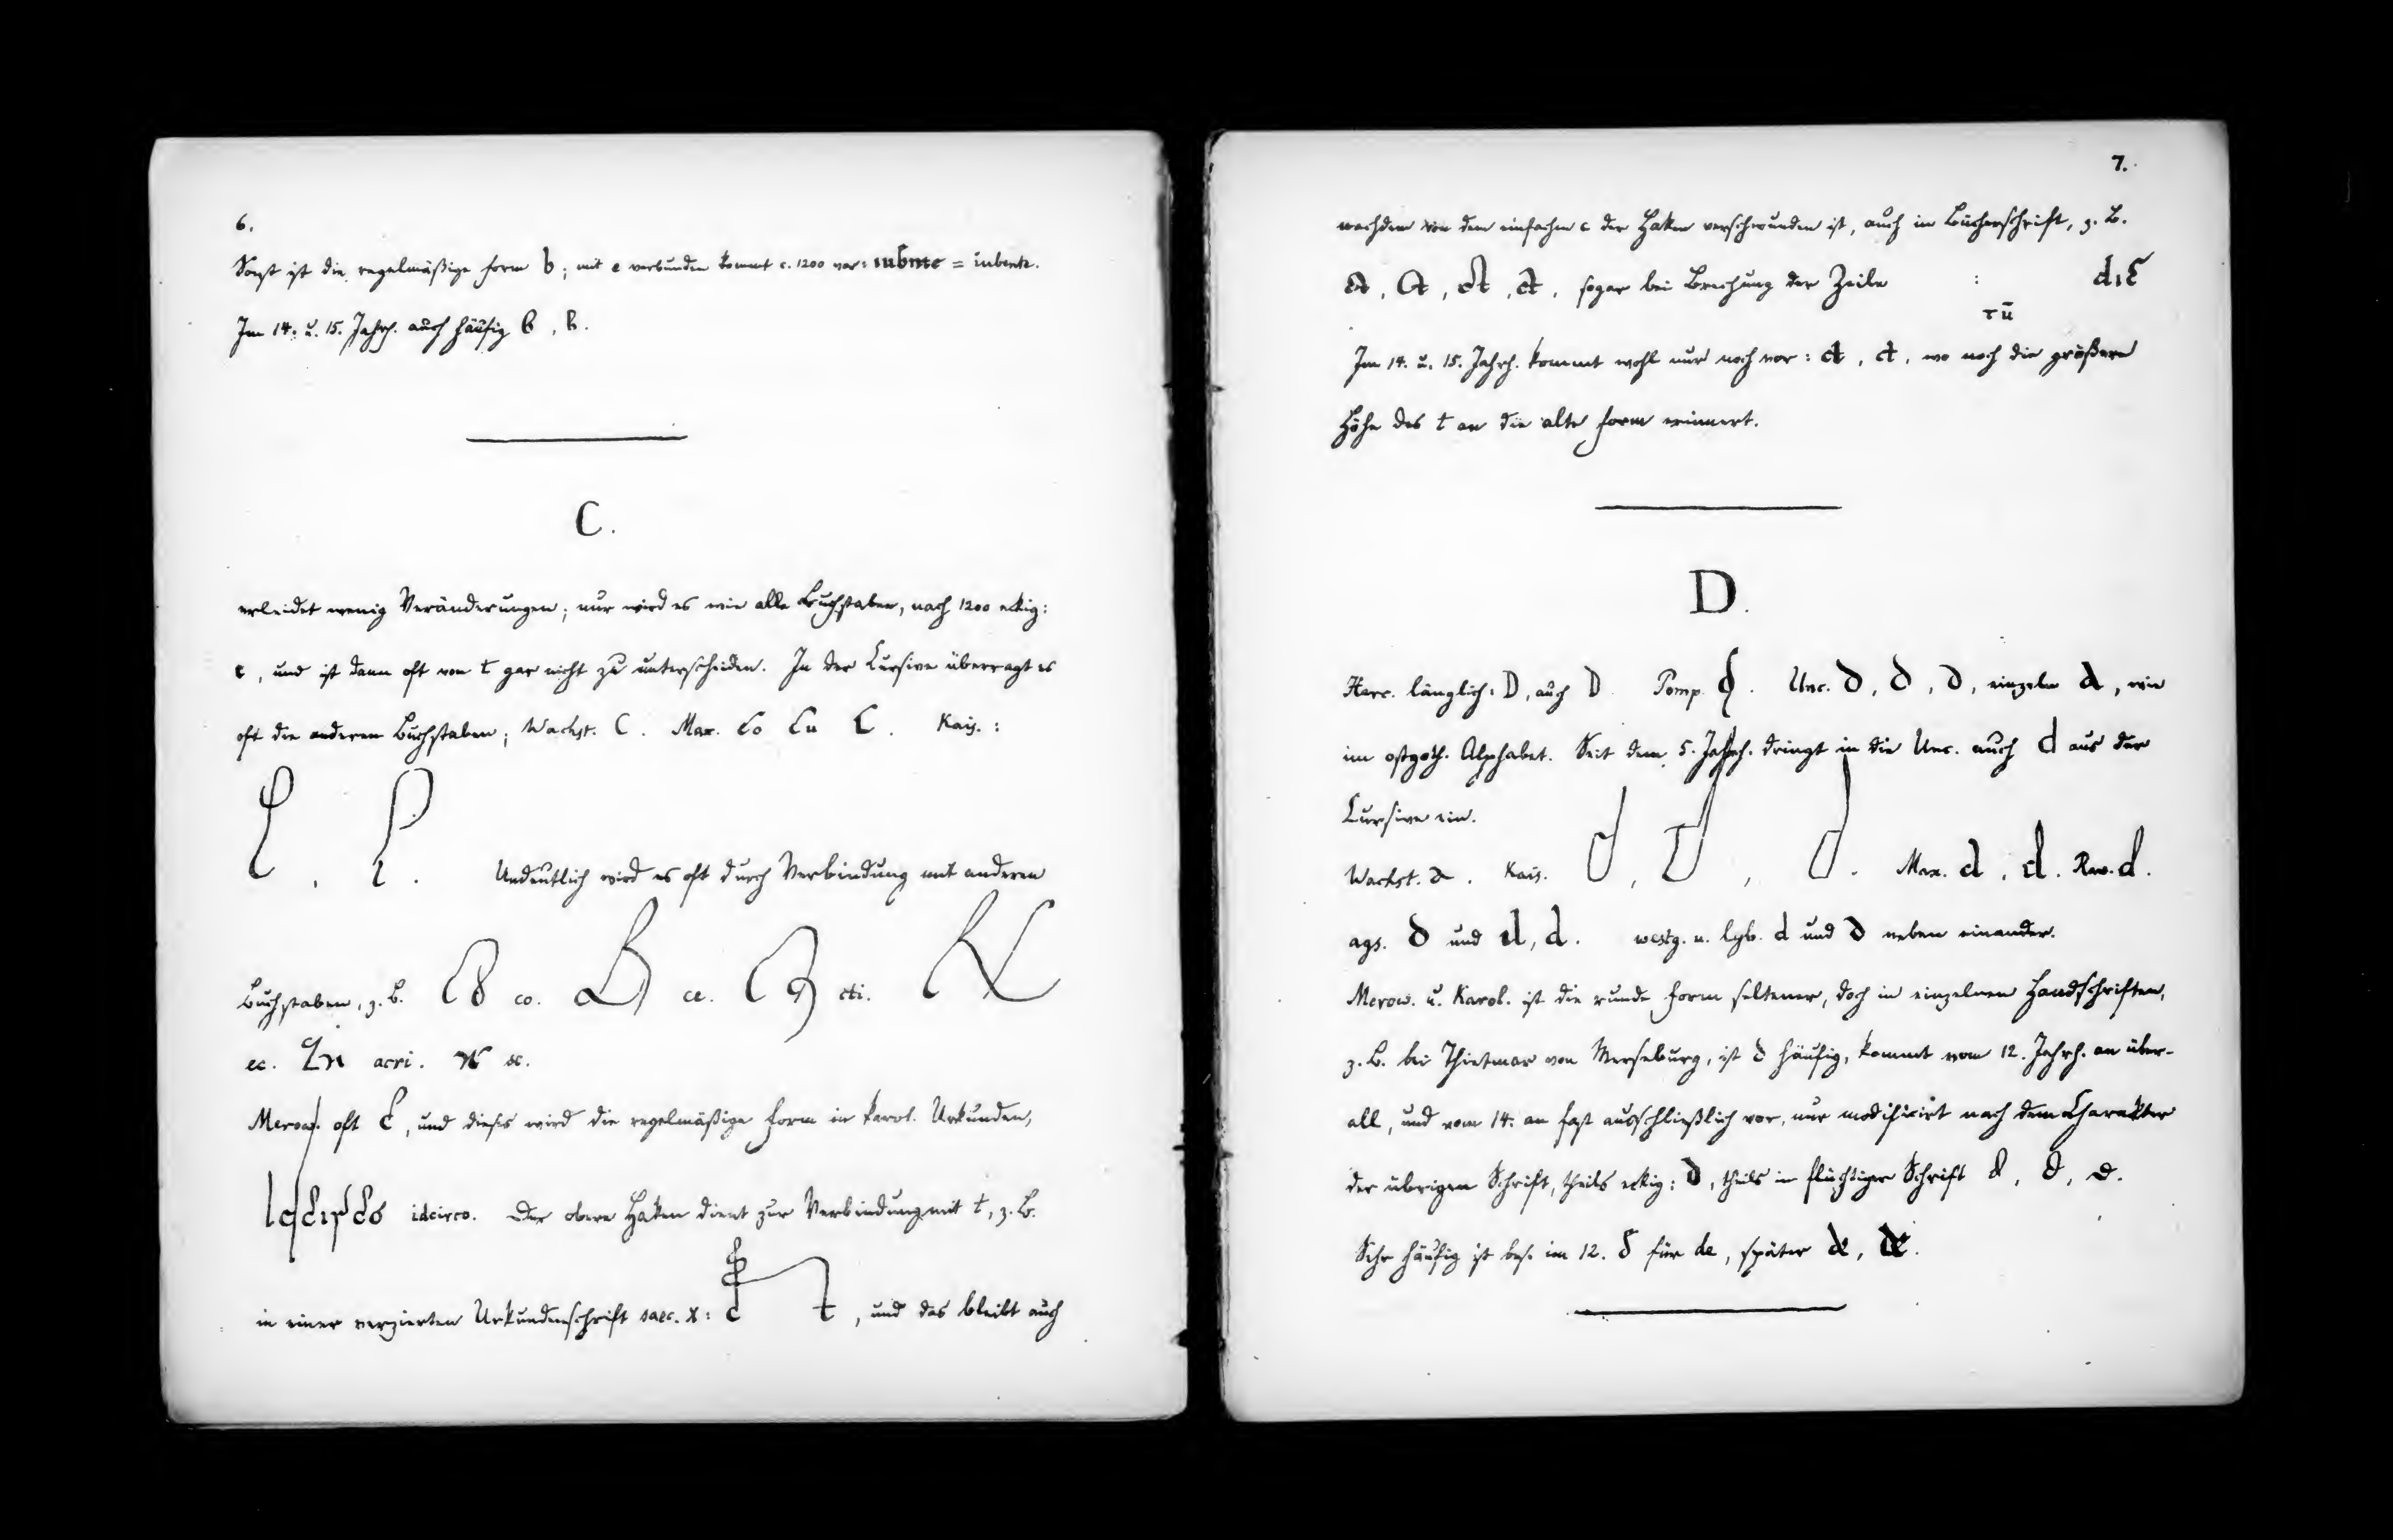 6.
Sonst ist die regelmäßige Form b; mit e verbunden kommt c. 1200 vor: = iubente.
Im 14. u. 15. Jahrh. auch häufig b, b.
C.
erleidet wenig Veränderungen; nur wird es wie alle Buchstaben, nach 1200 eckig:
c, und ist dann oft von t gar nicht zu unterscheiden. In der Cursive überragt es
oft die anderen Buchstaben; Wachst. C. Max. Co Cu C. Kais.:
Undeutlich wird es oft durch Verbindung mit anderen
Buchstaben, z. B. co. ce. cti.
ec. acri. sc.
Merow. oft c, und dieses wird die regelmäßige Form in karol. Urkunden,
idcirco. Der obere Haken dient zur Verbindung mit t, z. B.
in einer verzierten Urkundenschrift saec. X: c t, und das bleibt auch
7.
nachdem von dem einfachen c der Haken verschwunden ist, auch in Bücherschrift, z. B.
ct, ct, ct, ct, sogar bei Brechung der Zeile : dic
tū
Im 14. u. 15. Jahrh. kommt wohl nur noch vor: ct, ct, wo noch die größere
Höhe des t an die alte Form erinnert.
D.
Herc. länglich: D, auch D. Pomp. Unc. d, d, d, einzeln d, wie
im ostgoth. Alphabet. Seit dem 5. Jahrh. dringt in die Unc. auch d aus der
Cursive ein.
Wachst. d. Kais. d, d, d. Max. d, d. Rav. d.
ags. d und d, d. westg. u. lgb. d und d neben einander.
Merow. u. Karol. ist die runde Form seltener, doch in einzelnen Handschriften,
z. B. bei Thietmar von Merseburg, ist d häufig, kommt vom 12. Jahrh. an über-
all, und vom 14. an fast ausschließlich vor, nur modificirt nach dem Charakter
der übrigen Schrift, theils eckig: d, theils in flüchtiger Schrift d, d, d.
Sehr häufig ist bes. im 12. für de, später de, de.